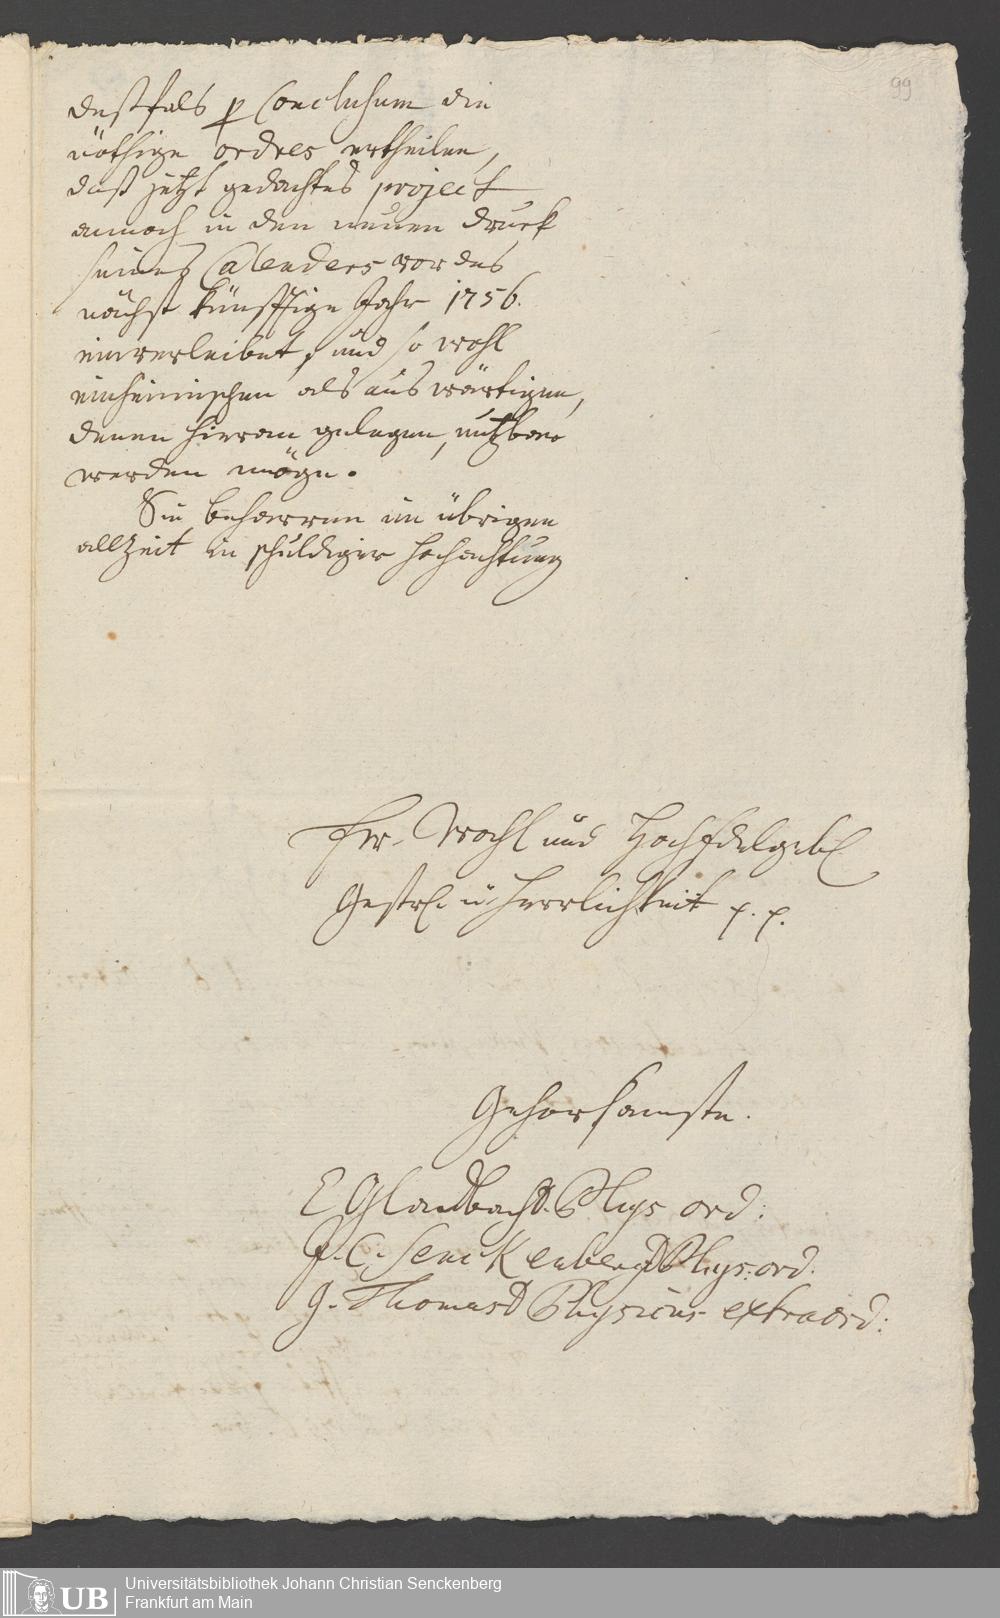 99
deßfals p Conclusum die
nöthige ordres ertheilen,
daß jetzt gedachtes project
annoch in den neuen druck
seines Calenders vor das
nächst künfftige Jahr 1756.
einverleibet, und so wohl
einheimischen als auswärtigen,
denen hieran gelegen, nutzbar
werden möge.
Die beharren im übrigen
allzeit in schuldiger hochachtung
Ew. Wohl und HochEdelgeb.
Gestr. u. Herrlichkeit p. p.
Gehorsamste.
E Gladbach D. Phys ord:
J. C. Senckenberg D Phys: ord.
G. Thomas D Physicus extraord:
UB
Universitätsbibliothek Johann Christian Senckenberg
Frankfurt am Main